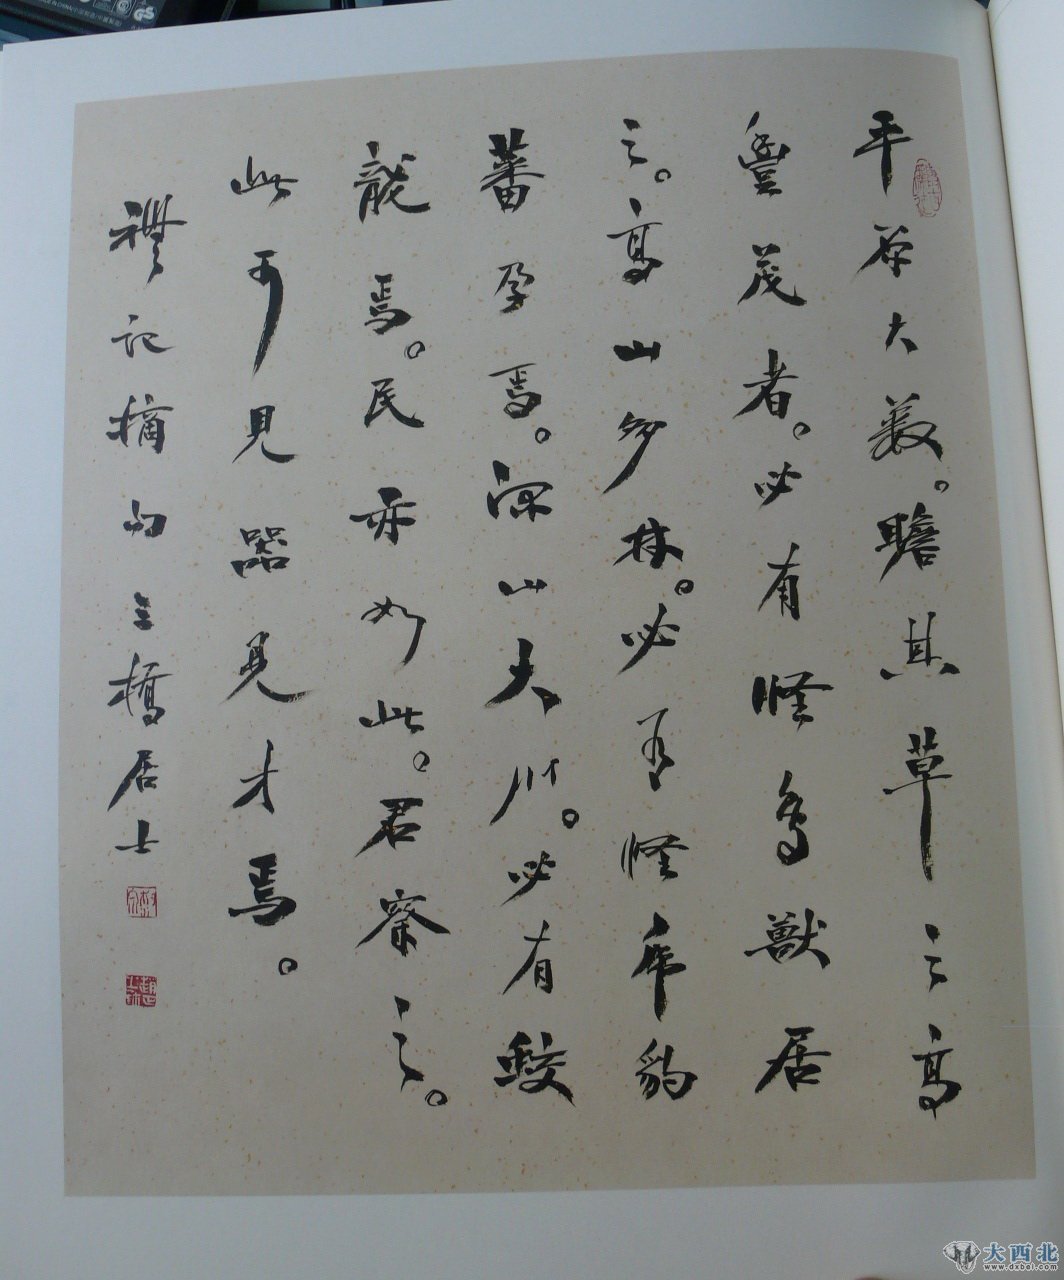 平原大薮。瞻其草之高
豐茂者。必有怪鳥獸居
之。高山多林。必有怪虎豹
蕃孕焉。深山大川。必有蛟
龍焉。民亦如此。君察之。
此可見器見才焉。
禮記摘句三橋居士
大西北
www.dxbei.com